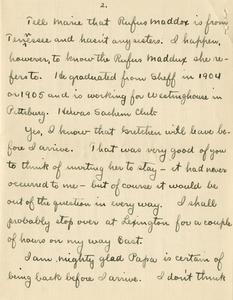 2.
Tell Marie that Rufus Maddox is from
Tennessee and hasn't any sisters. I happen,
however, to know the Rufus Maddux she re-
fers to. He graduated from Sheff in 1904
or 1905 and is working for Westinghouse in
Pittsburg. He was Sachem Club.
Yes, I know that Gretchen will leave be-
fore I arrive. That was very good of you
to think of inviting her to stay - it had never
occurred to me - but of course it would be
out of the question in every way. I shall
probably stop over at Lexington for a couple
of hours on my way East.
I am mighty glad Papa is certain of
being back before I arrive. I don't think